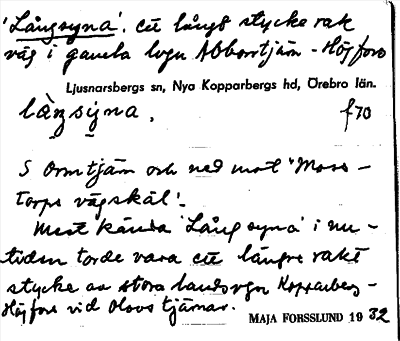 'Långsyna'. ett långt stycke rak
väg i gamla vägen Abborrtjärn - Högfors
Ljusnarsbergs sn, Nya Kopparbergs hd, Örebro län.
làŋsiŋna, f70
S Ormtjärn och ned mot 'Moss-
torps vägskäl'.
Mest kända 'Långsyna' i nu-
tiden torde vara ett längre rakt
stycke av stora landsvägen Kopparberg -
Högfors vid Olovstjärnar.
MAJA FORSSLUND 1932